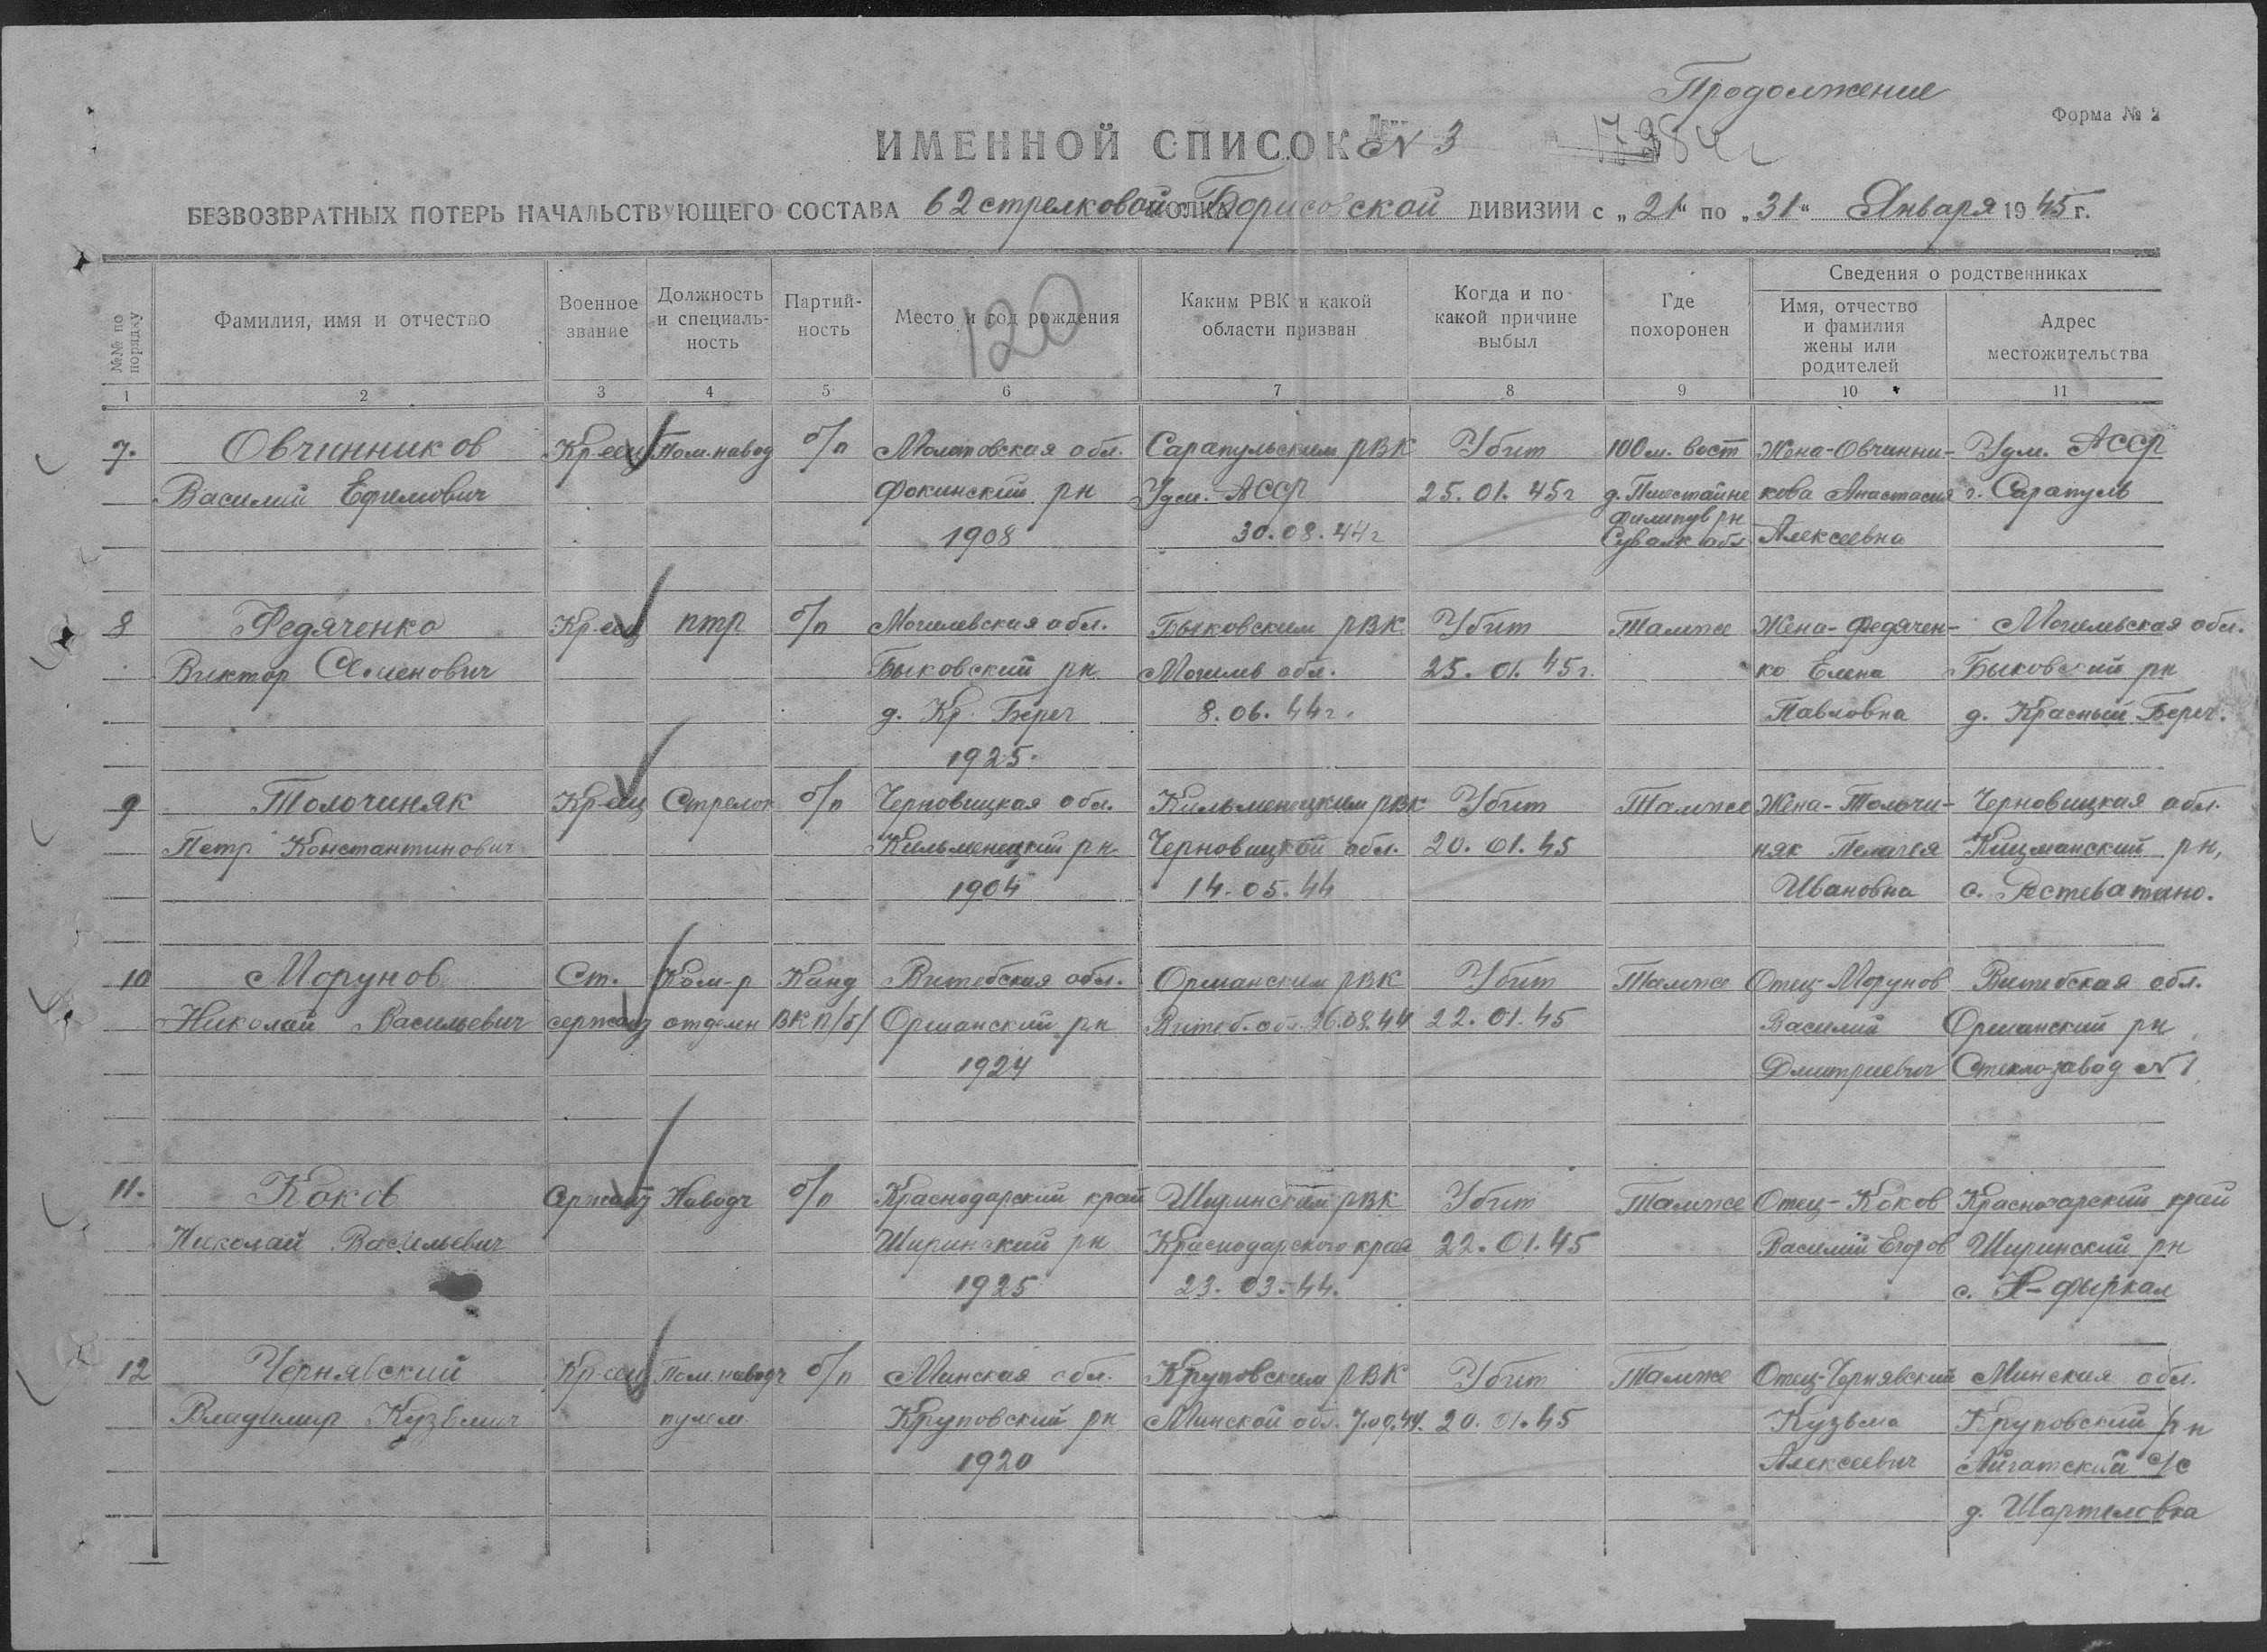 Продолжение
Форма № 2
ИМЕННОЙ СПИСОК № 3
БЕЗВОЗВРАТНЫХ ПОТЕРЬ НАЧАЛЬСТВУЮЩЕГО СОСТАВА 62 стрелковой Борисовской ДИВИЗИИ с „21“ по „31“ Января 1945 г.
№№ по порядку
Фамилия, имя и отчество
Военное звание
Должность и специаль-ность
Партий-ность
Место и год рождения
120
Каким РВК и какой области призван
Когда и по какой причине выбыл
Где похоронен
Сведения о родственниках
Имя, отчество и фамилия жены или родителей
Адрес местожительства
1 2 3 4 5 6 7 8 9 10 11
7. Овчинников Кр-еец Пом. навод б/п Молотовская обл. Сарапульским РВК Убит 100 м. вост Жена-Овчинни- Удм. АССР
Василий Ефимович Фокинский рн Удм. АССР 25.01.45г д. кова Анастасия г. Сарапуль
Филипув рн
1908 30.08.44г Сувалк обл Алексеевна
8 Федяченко Кр-еец птр б/п Могилевская обл. Быховским РВК Убит Тамже Жена-Федячен- Могилевская обл.
Виктор Семенович Быховский рн Могилев обл. 25.01.45г. ко Елена Быховский рн
д. Кр. Берег 8.06.44г. Павловна д. Красный Берег.
1925.
9 Толочиняк Кр-еец Стрелок б/п Черновицкая обл. Кильменецким РВК Убит Тамже Жена-Толочи- Черновицкая обл.
Петр Константинович Кильменецкий рн Черновицкой обл. 20.01.45 няк Пелагея Кицманский рн,
1904 14.05.44 Ивановна с.
10 Морунов Ст. Ком-р Канд Витебская обл. Оршанским РВК Убит Тамже Отец Морунов Витебская обл.
Николай Васильевич сержант отделен ВКП/б/ Оршанский рн Витеб. обл. 26.08.44 22.01.45 Василий Оршанский рн
1924 Дмитриевич Стеклозавод №1
11. Коков Сержант Наводч б/п Краснодарский край Ширинским РВК Убит Тамже Отец-Коков Красноарский край
Николай Васильевич Ширинский рн Краснодарского края 22.01.45 Василий Егоров Ширинский рн
1925 23.03.44. с. Н-фыркал
12 Чернявский Кр-еец Пом. наводч б/п Минская обл. Круповским РВК Убит Тамже Отец-Чернявский Минская обл.
Владимир Кузьмич пулем. Круповский рн Минской обл. 7.09.44. 20.01.45 Кузьма Круповский рн
1920 Алексеевич с/с
д. Шартиловка